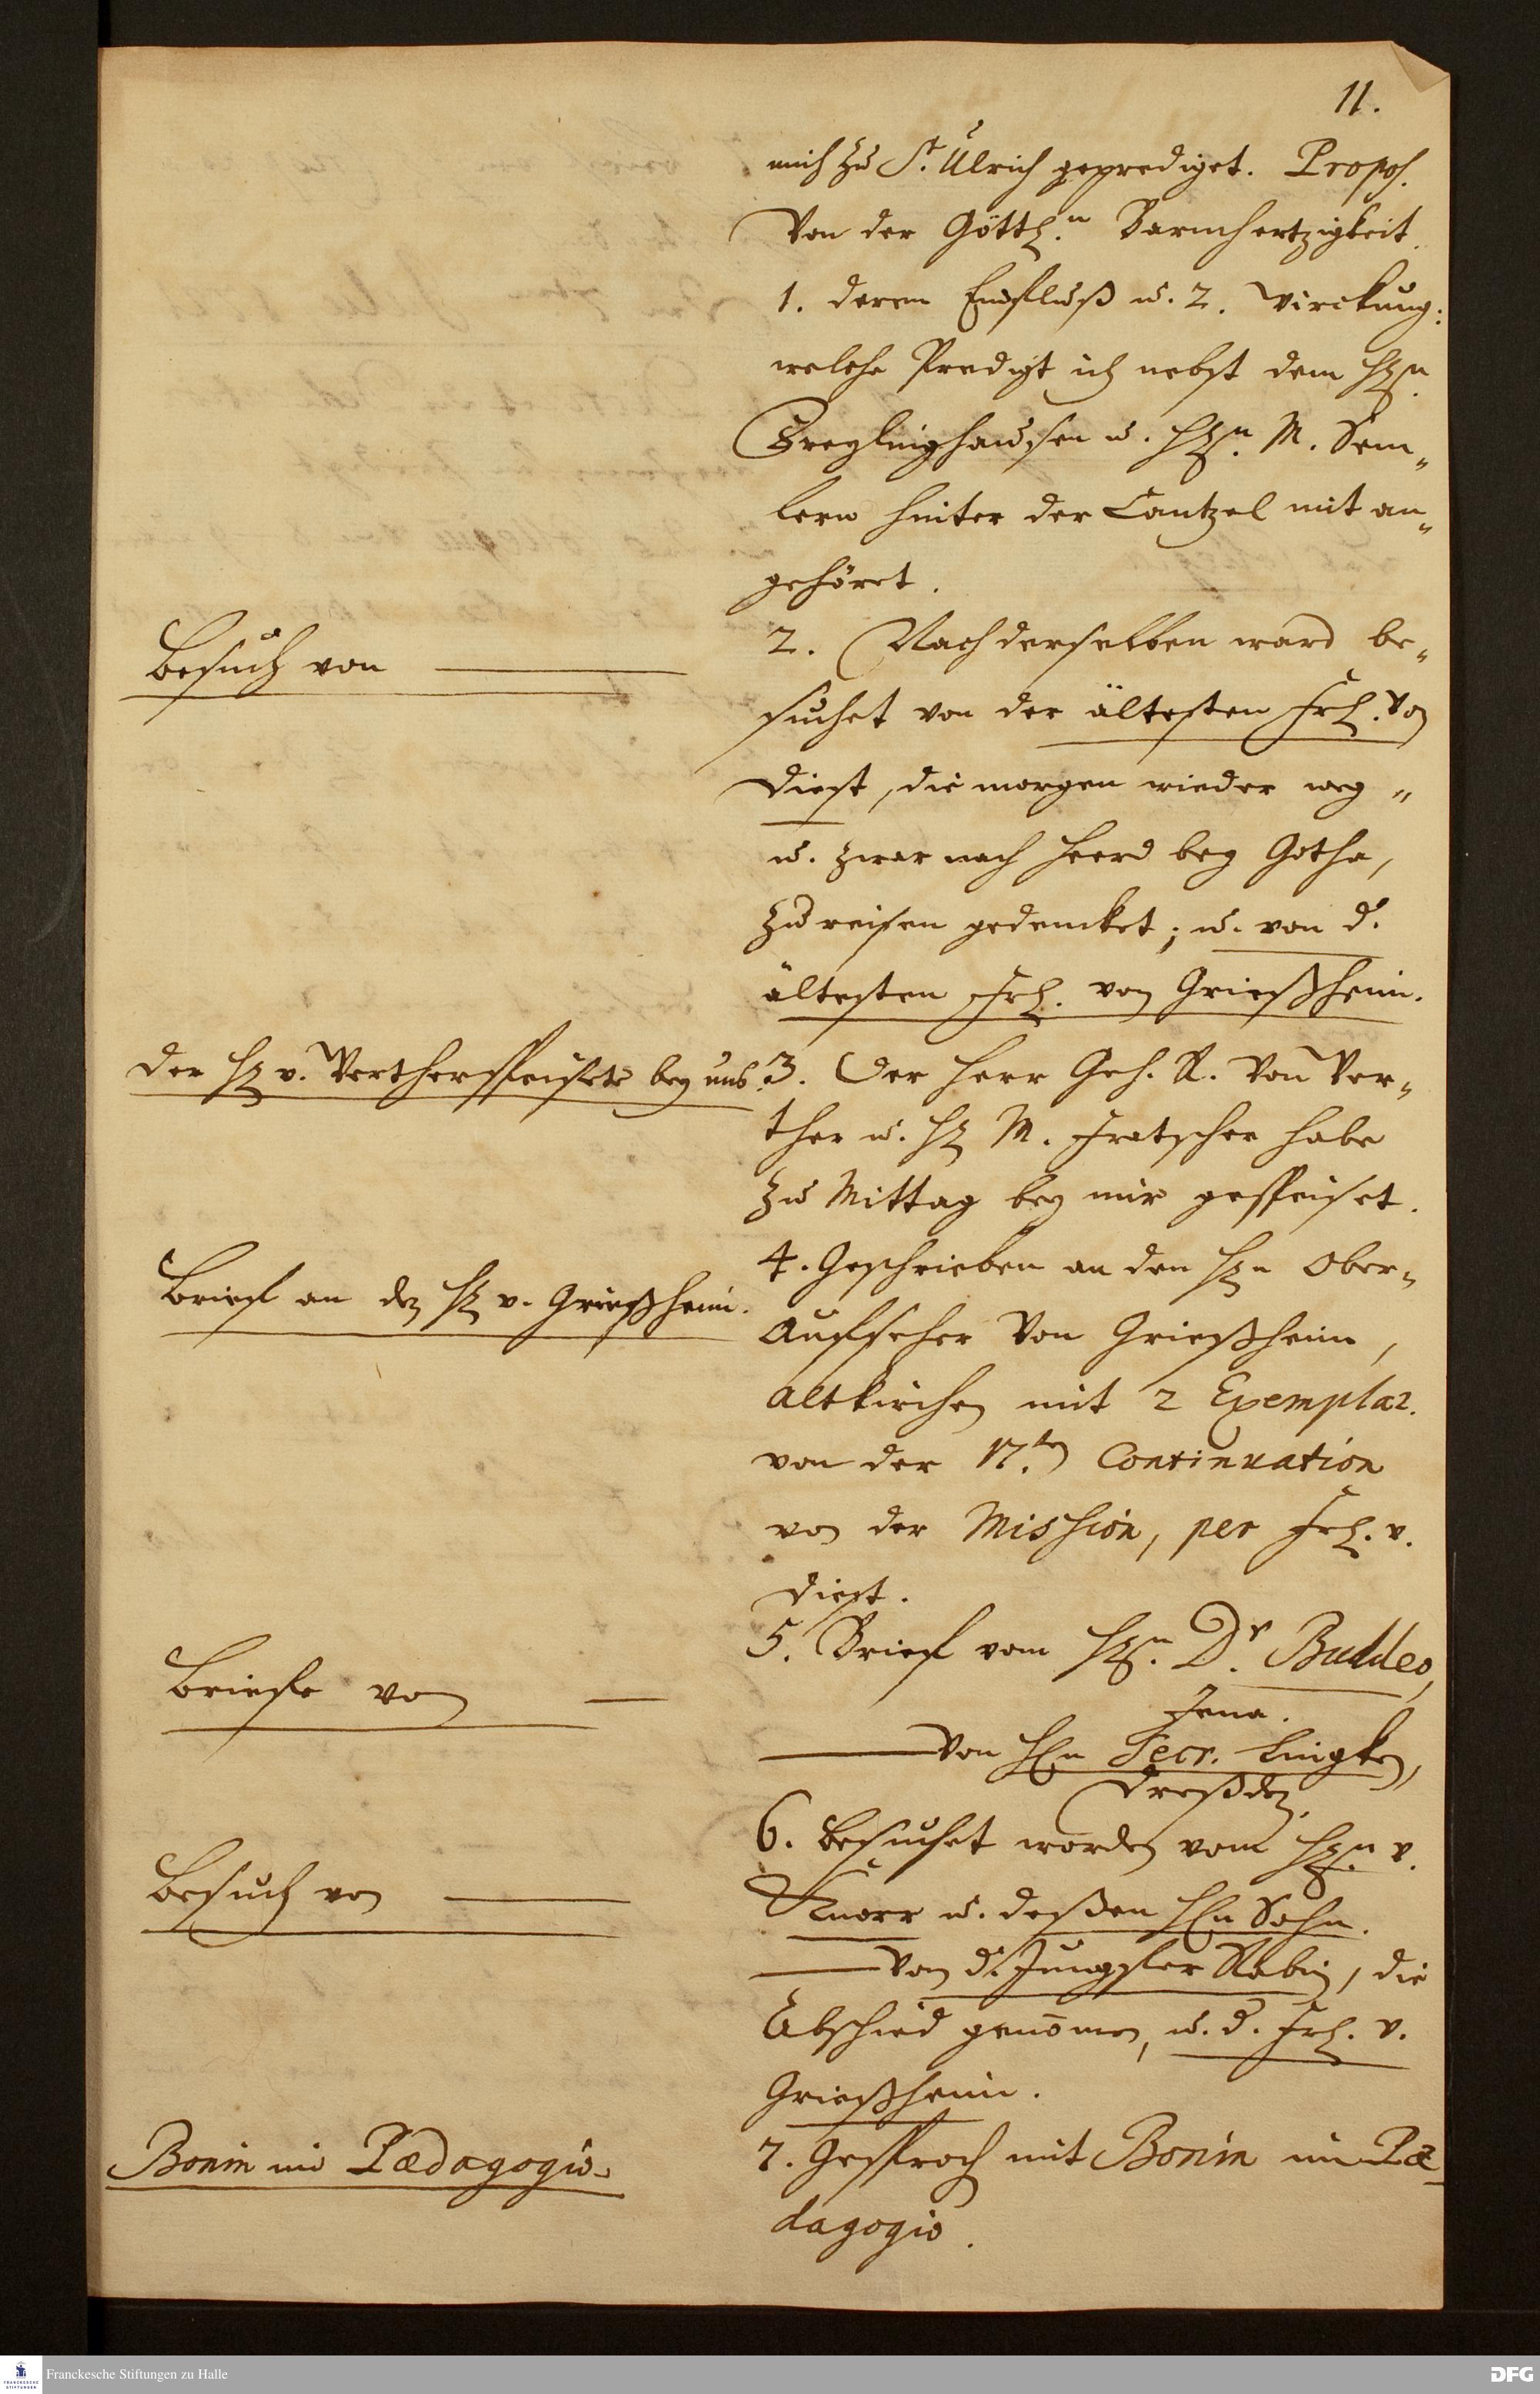 11.
mich zu St. Ulrich geprediget. Propos.
Von der Göttl.n Barmhertzigkeit
1. deren Einfluß u. 2. Würckung:
welche Predigt ich nebst dem H.n
u. H.n M. Sem„
lern hinter der Cantzel mit an„
gehöret.
Besuch von
2. Nach derselben ward be„
suchet von der ältesten Frl. von
Diest, die morgen wieder weg„
u. zwar nach Heerd bey Gotha,
zu reisen gedencket; u. von d.
ältesten Frl. von Grießheim.
der H. v. Werther speisete bey uns
3. Der Herr Geh. R. von Wer„
ther u. H. M. Fratscher habe
zu Mittag bey mir gespeiset.
Brief an den H. v. Grießheim.
4. Geschrieben an den H.n Ober„
Aufseher von Grießheim,
Altkirchen mit 2 Exemplar.
von der 17.ten Continuation
von der Mission, per Frl. v.
Diest.
Briefe von
5. Brief vom H.n Dr. Buddeo,
Jena.
von H.n Secr. Lingken,
Dreßden.
Besuch von
6. Besuchet worden vom H.n v.
Knorr u. deßen H.n Sohn.
von d. Jungfer Rabin, die
Abschied genomen, u. d. Frl. v.
Grießheim.
Bonin im Pædagogio.
7. Gesproch mit Bonin im Pæ-
dagogio.
Franckesche Stiftungen zu Halle
DFG